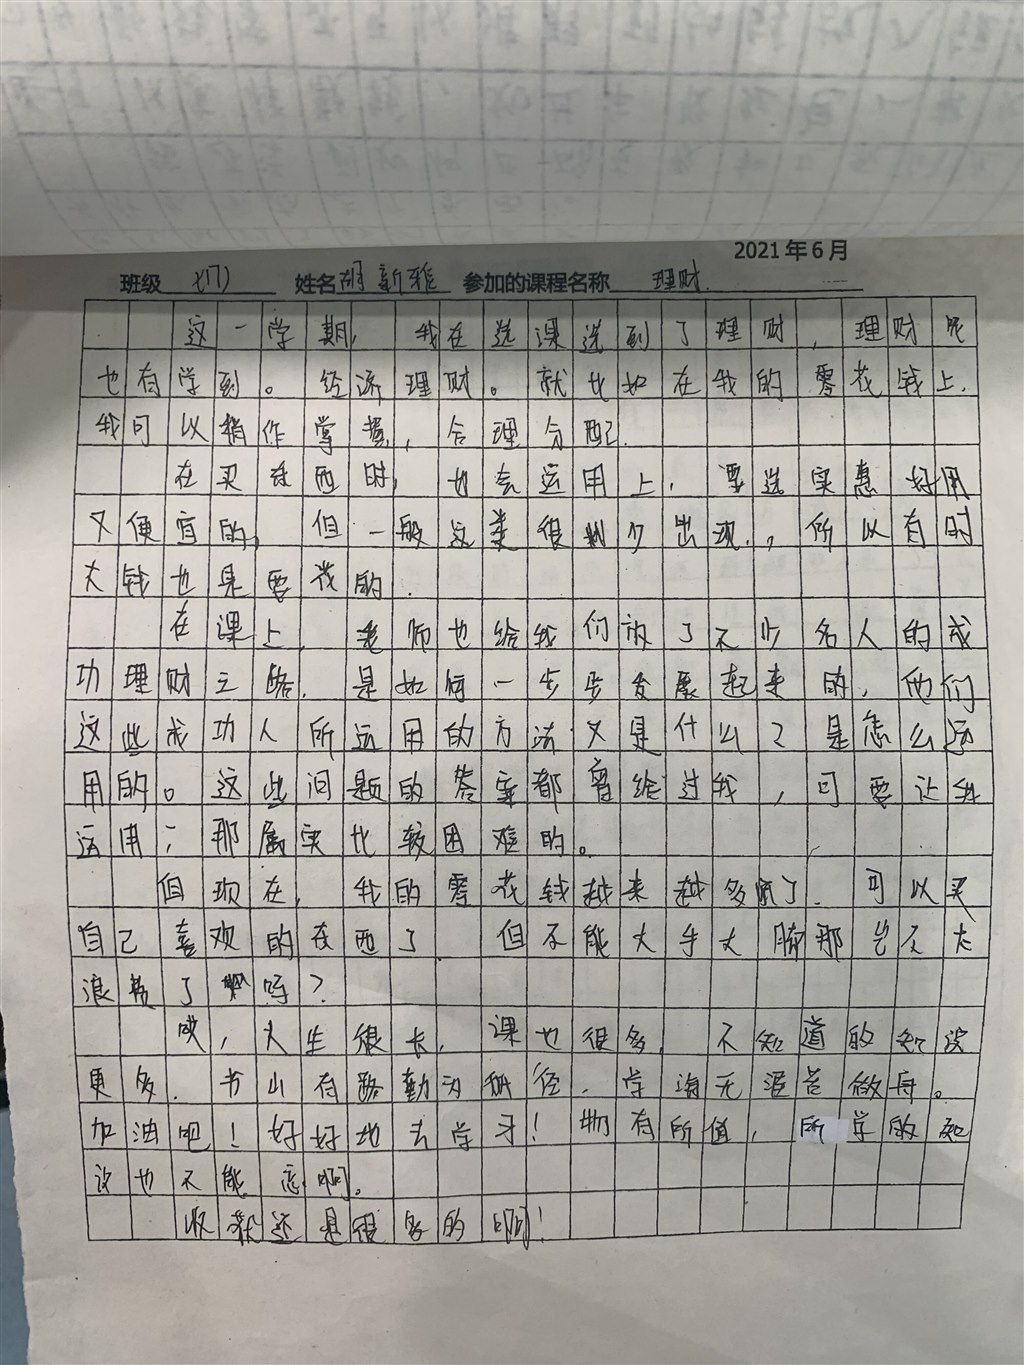 2021年6月
班级 七(7) 姓名 胡新雅 参加的课程名称 理财
这一学期，我在选课选到了理财，理财呢
也有学到。经济理财。就比如在我的零花钱上.
我可以稍作掌握，合理分配.
在买东西时，也会运用上，要选实惠好用
又便宜的，但一般这类很少出现，所以有时
大钱也是要花的.
在课上，老师也给我们放了不少名人的成
功理财之路，是如何一步步发展起来的，他们
这些成功人所运用的方法又是什么？是怎么运
用的。这些问题的答案都曾给过我，可要让我
运用；那属实比较困难的。
但现在，我的零花钱越来越多了．可以买
自己喜欢的东西了．但不能大手大脚那岂不太
浪费了吗？
人生很长，课也很多，不知道的知识
更多．书山有路勤为径．学海无涯苦做舟。
加油吧！好好地去学习！物有所值，所学的知
识也不能忘啊。
收获还是很多的啊！